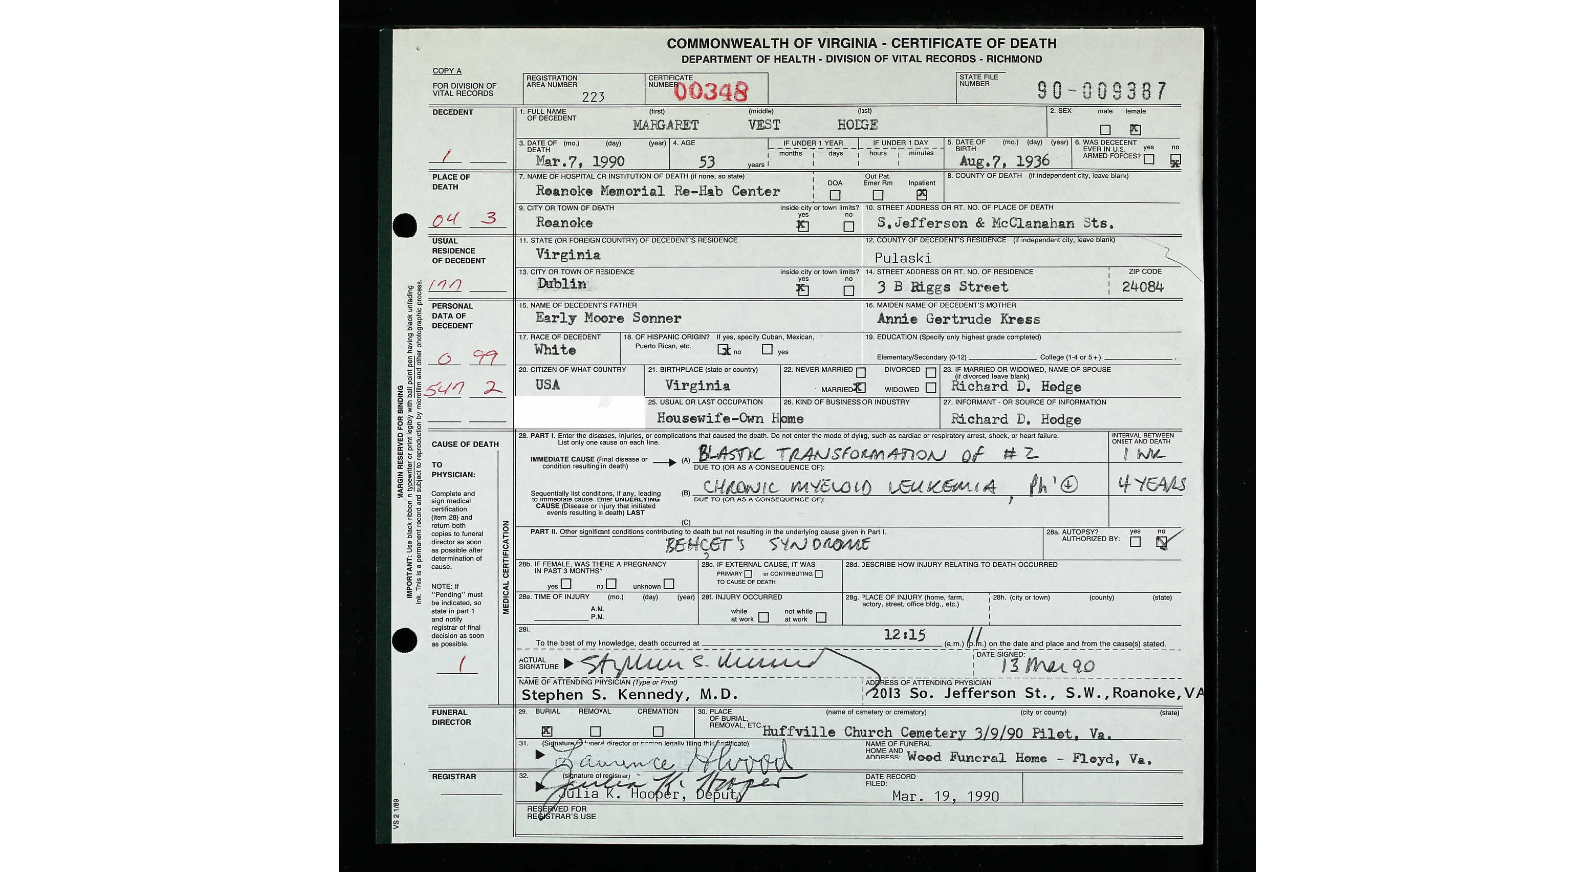 COMMONWEALTH OF VIRGINIA - CERTIFICATE OF DEATH
DEPARTMENT OF HEALTH - DIVISION OF VITAL RECORDS - RICHMOND
COPY A
FOR DIVISION OF VITAL RECORDS
REGISTRATION AREA NUMBER 223
CERTIFICATE NUMBER 00348
STATE FILE NUMBER 90-009387
DECEDENT
1. FULL NAME OF DECEDENT (first) (middle) (last)
MARGARET VEST HODGE
2. SEX male female
3. DATE OF DEATH (mo.) (day) (year) Mar.7, 1990
4. AGE 53 years
IF UNDER 1 YEAR months days
IF UNDER 1 DAY hours minutes
5. DATE OF BIRTH (mo.) (day) (year) Aug.7, 1936
6. WAS DECEDENT EVER IN U.S. ARMED FORCES? yes no
1
PLACE OF DEATH
7. NAME OF HOSPITAL OR INSTITUTION OF DEATH (if none, so state)
Roanoke Memorial Re-Hab Center
DOA Out Pat. Emer Rm Inpatient
8. COUNTY OF DEATH (if independent city, leave blank)
04 3
9. CITY OR TOWN OF DEATH inside city or town limits? yes no
Roanoke
10. STREET ADDRESS OR RT. NO. OF PLACE OF DEATH
S.Jefferson & McClanahan Sts.
USUAL RESIDENCE OF DECEDENT
11. STATE (OR FOREIGN COUNTRY) OF DECEDENT'S RESIDENCE
Virginia
12. COUNTY OF DECEDENT'S RESIDENCE (if independent city, leave blank)
Pulaski
13. CITY OR TOWN OF RESIDENCE inside city or town limits? yes no
Dublin
14. STREET ADDRESS OR RT. NO. OF RESIDENCE ZIP CODE
3 B Riggs Street 24084
PERSONAL DATA OF DECEDENT
15. NAME OF DECEDENT'S FATHER
Early Moore Sonner
16. MAIDEN NAME OF DECEDENT'S MOTHER
Annie Gertrude Kress
17. RACE OF DECEDENT
White
18. OF HISPANIC ORIGIN? If yes, specify Cuban, Mexican, Puerto Rican, etc. no yes
19. EDUCATION (Specify only highest grade completed)
Elementary/Secondary (0-12) College (1-4 or 5+)
0 99
20. CITIZEN OF WHAT COUNTRY
USA
21. BIRTHPLACE (state or country)
Virginia
22. NEVER MARRIED DIVORCED
MARRIED WIDOWED
23. IF MARRIED OR WIDOWED, NAME OF SPOUSE (if divorced leave blank)
Richard D. Hodge
547 2
25. USUAL OR LAST OCCUPATION
Housewife-Own Home
26. KIND OF BUSINESS OR INDUSTRY
27. INFORMANT - OR SOURCE OF INFORMATION
Richard D. Hodge
MARGIN RESERVED FOR BINDING
CAUSE OF DEATH
TO PHYSICIAN:
Complete and sign medical certification (item 28) and return both copies to funeral director as soon as possible after determination of cause.
NOTE: If "Pending" must be indicated, so state in part 1 and notify registrar of final decision as soon as possible.
1
MEDICAL CERTIFICATION
28. PART I. Enter the diseases, injuries, or complications that caused the death. Do not enter the mode of dying, such as cardiac or respiratory arrest, shock, or heart failure.
List only one cause on each line.
INTERVAL BETWEEN ONSET AND DEATH
IMMEDIATE CAUSE (Final disease or condition resulting in death) (A) BLASTIC TRANSFORMATION OF #2
DUE TO (OR AS A CONSEQUENCE OF):
Sequentially list conditons, if any, leading to immediate cause. Enter UNDERLYING CAUSE (Disease or injury that initiated events resulting in death) LAST
(B) CHRONIC MYELOID LEUKEMIA, Ph'⊕ 4 YEARS
DUE TO (OR AS A CONSEQUENCE OF):
(C)
PART II. Other significant conditions contributing to death but not resulting in the underlying cause given in Part I.
BEHÇET'S SYNDROME
28a. AUTOPSY? AUTHORIZED BY: yes no
28b. IF FEMALE, WAS THERE A PREGNANCY IN PAST 3 MONTHS? yes no unknown
28c. IF EXTERNAL CAUSE, IT WAS PRIMARY or CONTRIBUTING TO CAUSE OF DEATH
28d. DESCRIBE HOW INJURY RELATING TO DEATH OCCURRED
28e. TIME OF INJURY (mo.) (day) (year)
28f. INJURY OCCURRED while at work not while at work
28g. PLACE OF INJURY (home, farm, factory, street, office bldg., etc.)
28h. (city or town) (county) (state)
28i.
To the best of my knowledge, death occurred at 12:15 (a.m.) (p.m.) on the date and place and from the cause(s) stated.
ACTUAL SIGNATURE
DATE SIGNED: 13 Mar 90
NAME OF ATTENDING PHYSICIAN (Type or Print)
Stephen S. Kennedy, M.D.
ADDRESS OF ATTENDING PHYSICIAN
2013 So. Jefferson St., S.W.,Roanoke,VA
FUNERAL DIRECTOR
29. BURIAL REMOVAL CREMATION
30. PLACE OF BURIAL, REMOVAL, ETC. (name of cemetery or crematory) (city or county) (state)
Huffville Church Cemetery 3/9/90 Pilot, Va.
31. (Signature of funeral director or person legally filing this certificate)
NAME OF FUNERAL HOME AND ADDRESS: Wood Funeral Home - Floyd, Va.
REGISTRAR
32. (signature of registrar)
Julia K. Hooper
Julia K. Hooper, Deputy
DATE RECORD FILED:
Mar. 19, 1990
RESERVED FOR REGISTRAR'S USE
VS 2 1/89